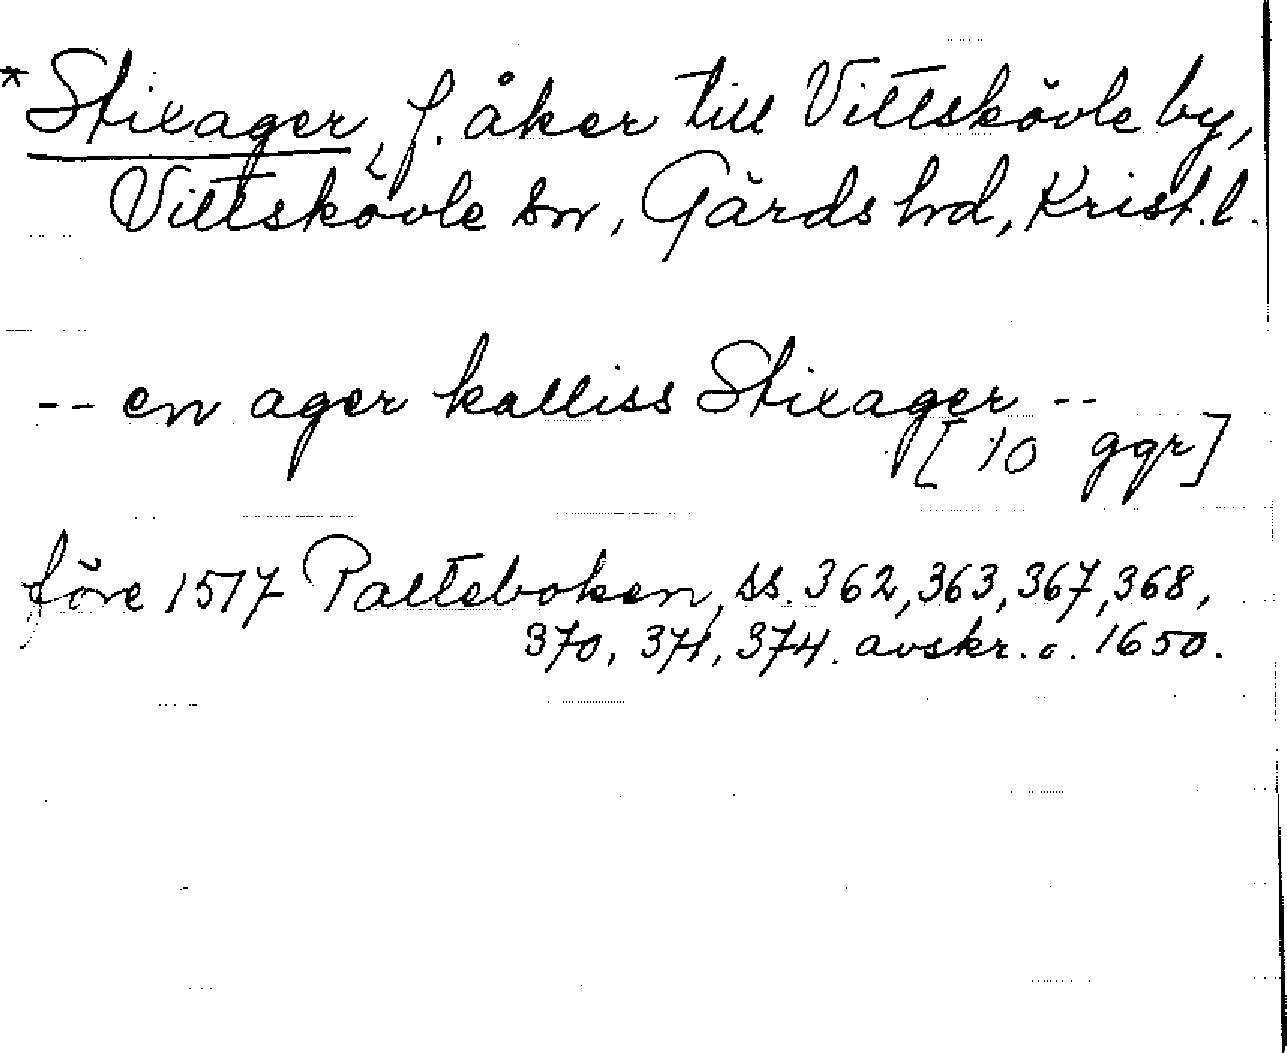 *Stixager, f. åker till Vittskövle by,
Vittskövle sn, Gärds hd, Krist. l.
-- en ager kalliss Stixager --
[10 ggr]
före 1517 Palteboken, ss. 362, 363, 367, 368,
370, 371, 374. avskr. o. 1650.